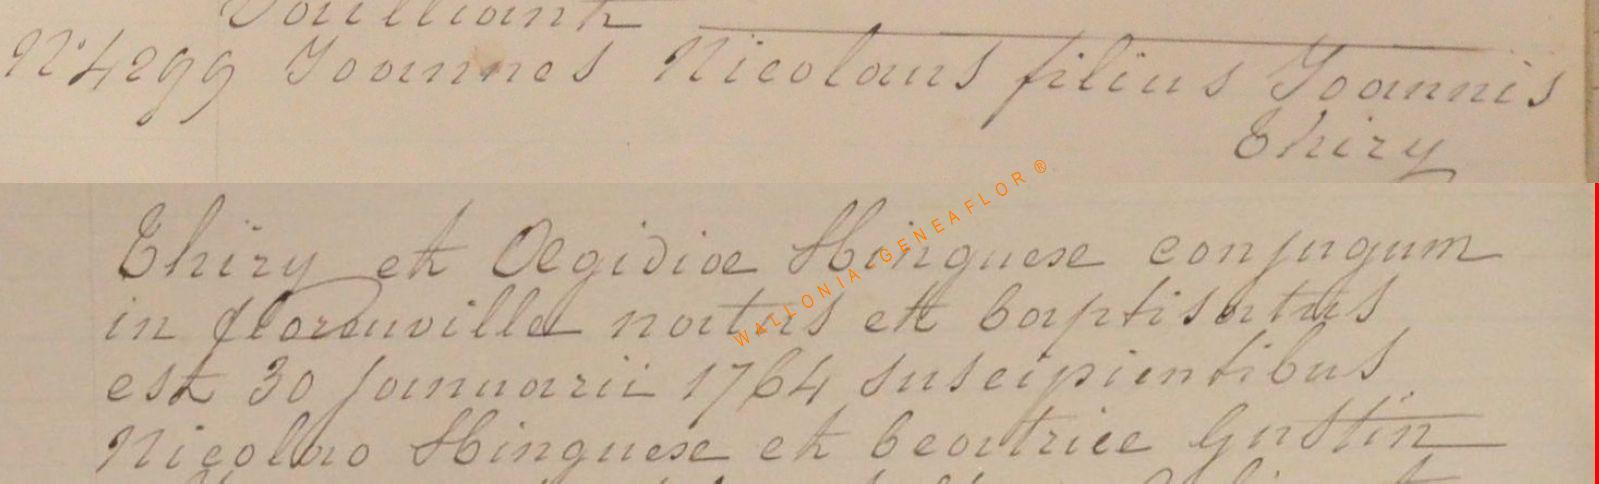 Vaillant
N°4299 Joannes Nicolaus filius Joannis
Thiry
Thiry et Ægidiæ Hinguese conjugum
in florenville natus et baptisatus
est 30 januarii 1764 suscipientibus
Nicolao Hinguese et beatrice Gustin
WALLONIA-GENEAFLOR ®